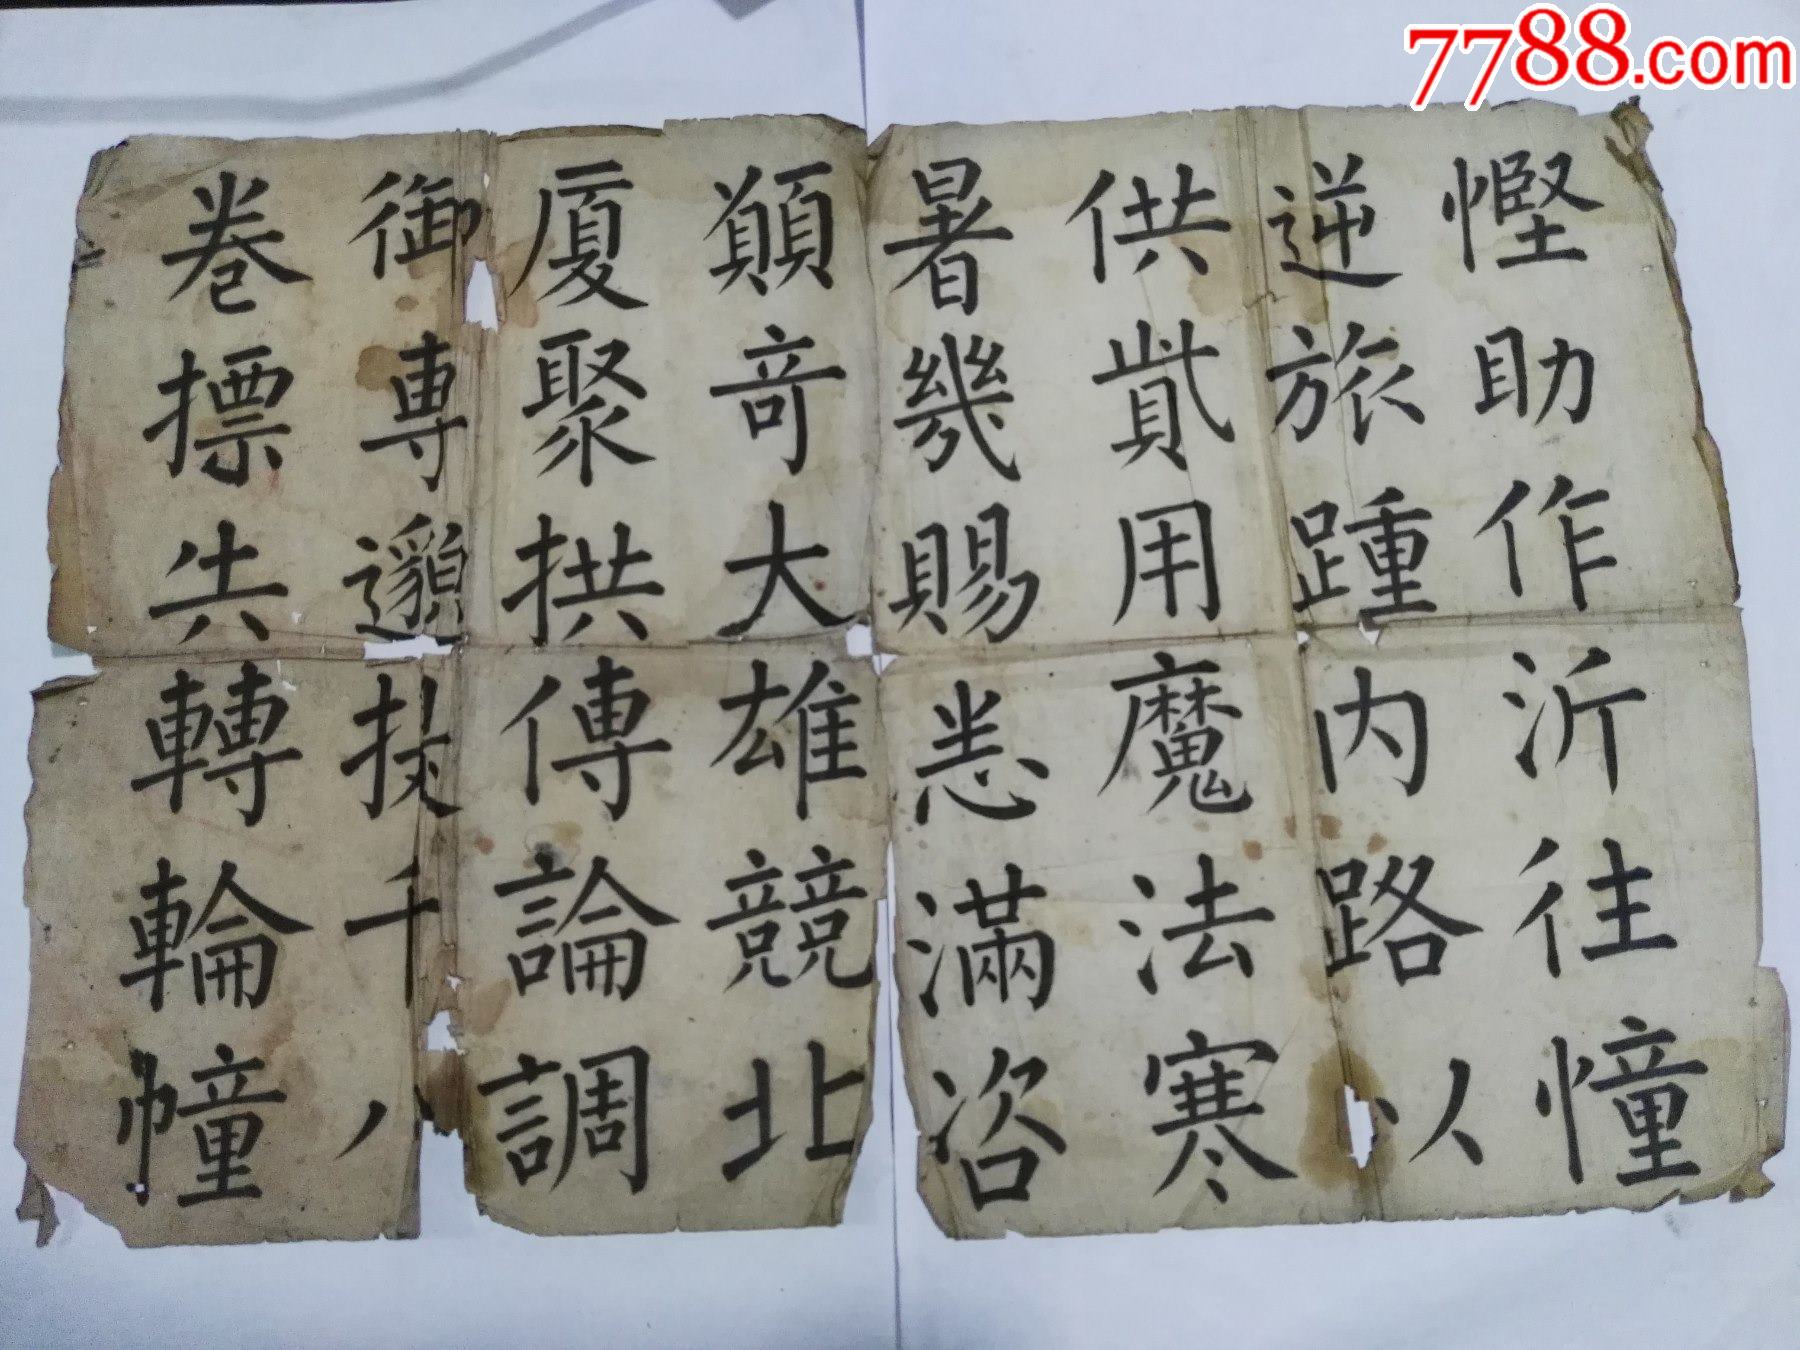 7788.com
慳助作沂往憧
逆旅踵内路以
供貲用魔法寒
暑幾賜滿咨
顛竒大雄競北
厦聚拱傳論調
御專邈投千八
卷摽轉輪幢